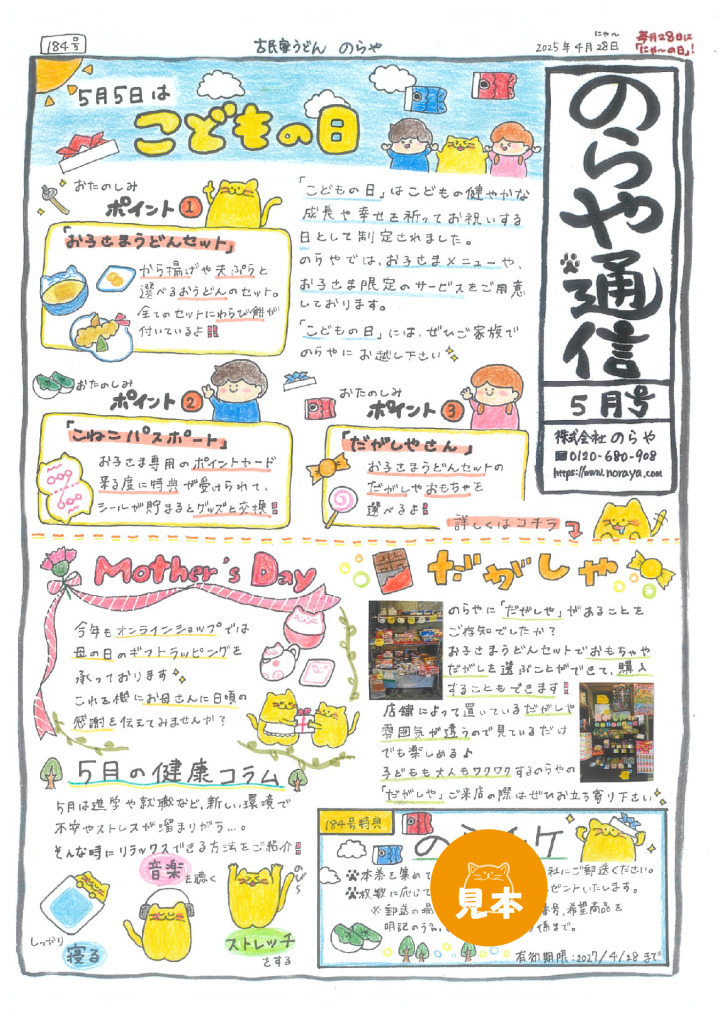 184号
古民家うどん のらや
にゃ〜
2025年4月28日
毎月28日は
「にゃ〜の日」!
のらや通信
5月号
株式会社 のらや
0120-680-908
https://www.noraya.com
5月5日は
こどもの日
おたのしみ
ポイント1
「お子さまうどんセット」
から揚げや天ぷらと
選べるおうどんのセット。
全てのセットにわらび餅が
付いているよ!!
「こどもの日」はこどもの健やかな
成長や幸せを祈ってお祝いする
日として制定されました。
のらやでは、お子さまメニューや、
お子さま限定のサービスをご用意
しております。
「こどもの日」には、ぜひご家族で
のらやにお越し下さい
おたのしみ
ポイント2
「こねこパスポート」
お子さま専用のポイントカード
来る度に特典が受けられて、
シールが貯まるとグッズと交換!
おたのしみ
ポイント3
「だがしやさん」
お子さまうどんセットの
だがしやおもちゃを
選べるよ!
詳しくはコチラ
Mother's Day
今年もオンラインショップでは
母の日のギフトラッピングを
承っております
これを機にお母さんに日頃の
感謝を伝えてみませんか?
だがしや
のらやに「だがしや」があることを
ご存知でしたか?
お子さまうどんセットでおもちゃや
だがしを選ぶことができて、購入
することもできます!
店舗によって置いているだがしや
雰囲気が違うので見ているだけ
でも楽しめる♪
子どもも大人もワクワクするのらやの
「だがしや」ご来店の際はぜひお立ち寄り下さい
5月の健康コラム
5月は進学や就職など、新しい環境で
不安やストレスが溜まりがち…。
そんな時にリラックスできる方法をご紹介!
しっかり
寝る
音楽を聴く
のび〜
ストレッチ
をする
184号特典
の
ケ
本券を集めて
社にご郵送ください。
枚数に応じて
ゼントいたします。
※郵送の場
番号、希望商品を
明記のうえ
係まで。
見本
有効期限:2027/4/28まで